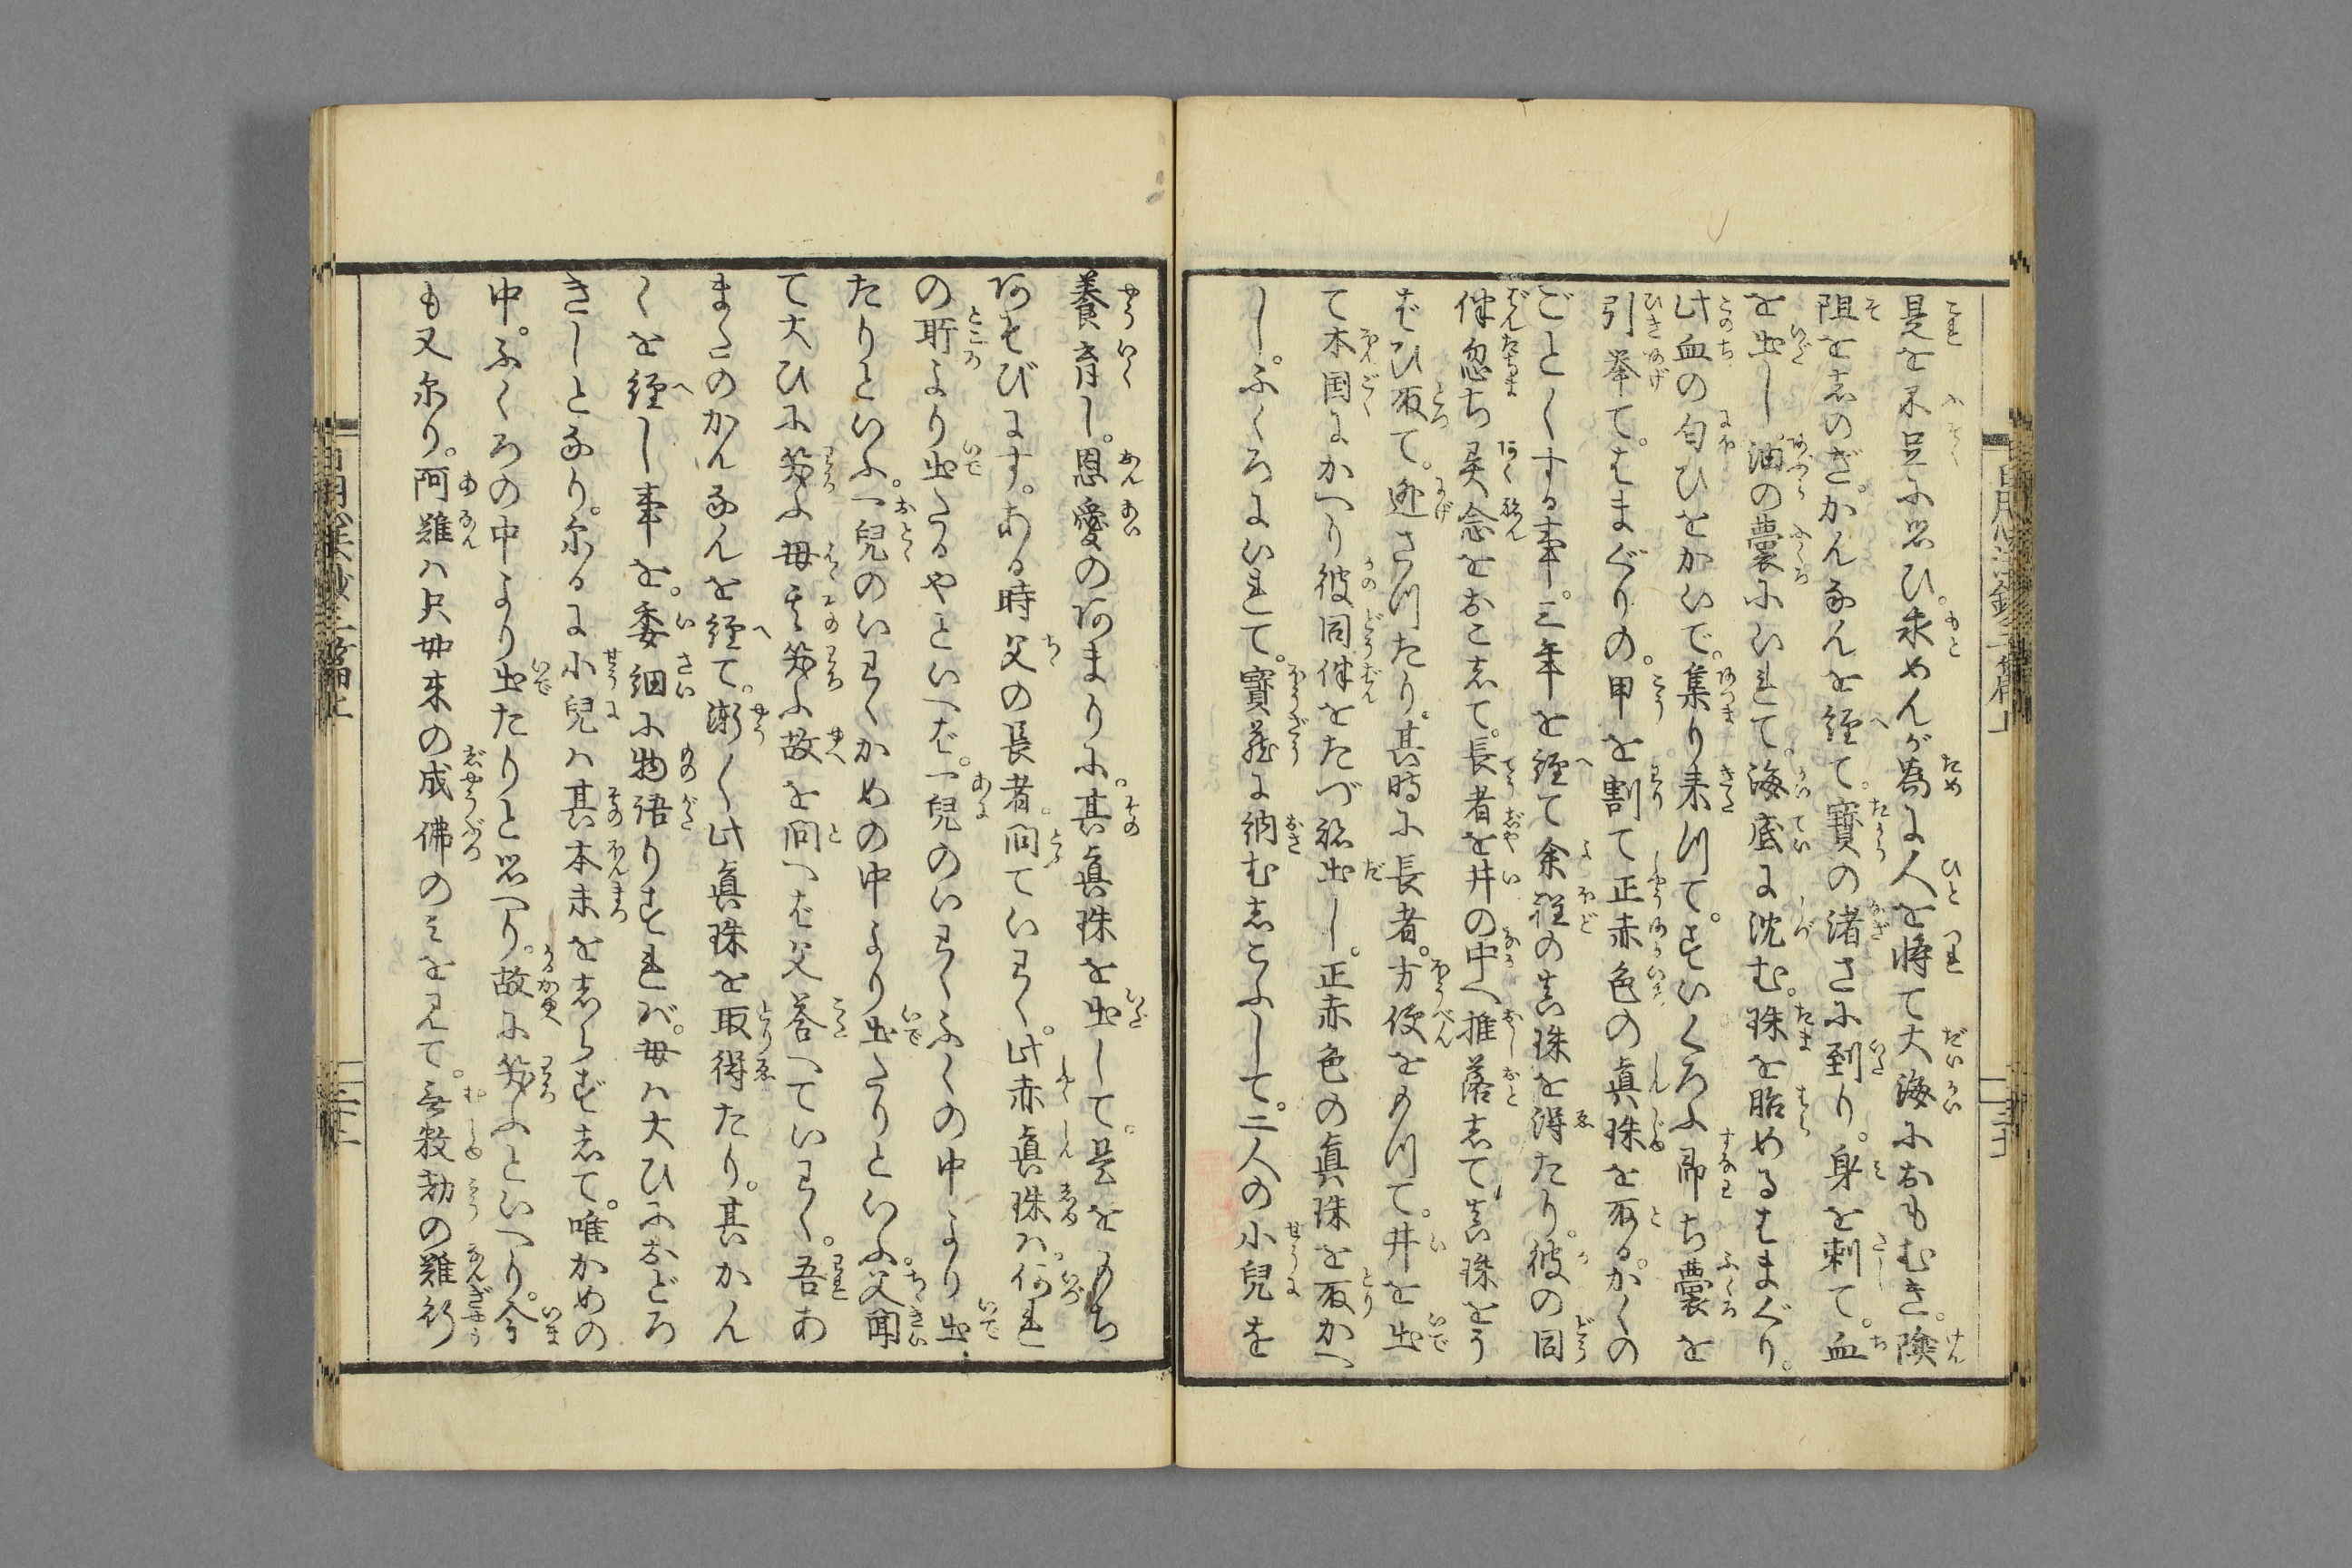 是を不足に思ひ。求めんが為に人を将て大海におもむき。険
阻をしのぎ。かんなんを経て。寶の渚さに到り。身を刺て。血
を出し。油の嚢にいれて。海底に沈む。珠を胎めるはまぐり。
此血の匂ひをかいで。集り来つて。すいくろふ即ち嚢を
引挙て。はまぐりの。甲を割て正赤色の真珠を取る。かくの
ごとくする事。三年を経て余程の真珠を得たり。彼の同
伴忽ち悪念をおこして。長者を井の中へ推落して真珠をう
ばひ取て。逃さつたり。其時に長者。方便をめつて。井を出
て本国にかへり彼同伴をたづね出し。正赤色の真珠を取かへ
し。ふくろにいれて。寶蔵に納むしこふして。二人の小兒を
養育し。恩愛のあまりに。其真珠を出して。是をもち
あそびにす。ある時父の長者。問ていわく。此赤真珠ハ。何れ
の所より出たるやといへば。一兒のいわくふくろの中より出
たりといふ。一兒のいわくかめの中より出たりといふ。父聞
て大ひに笑ふ母其笑ふ故を問へば父答へていわく。吾あ
またのかんなんを経て。漸く此真珠を取得たり。其かん
くを経し事を。委細に物語りすれバ。母ハ大ひにおどろ
きしとなり。尓るに小兒ハ其本末をしらずして。唯かめの
中。ふくろの中より出たりと思へり。故に笑ふといへり。今
も又尓り。阿難ハ只如来の成佛のミを見て。無数劫の難行